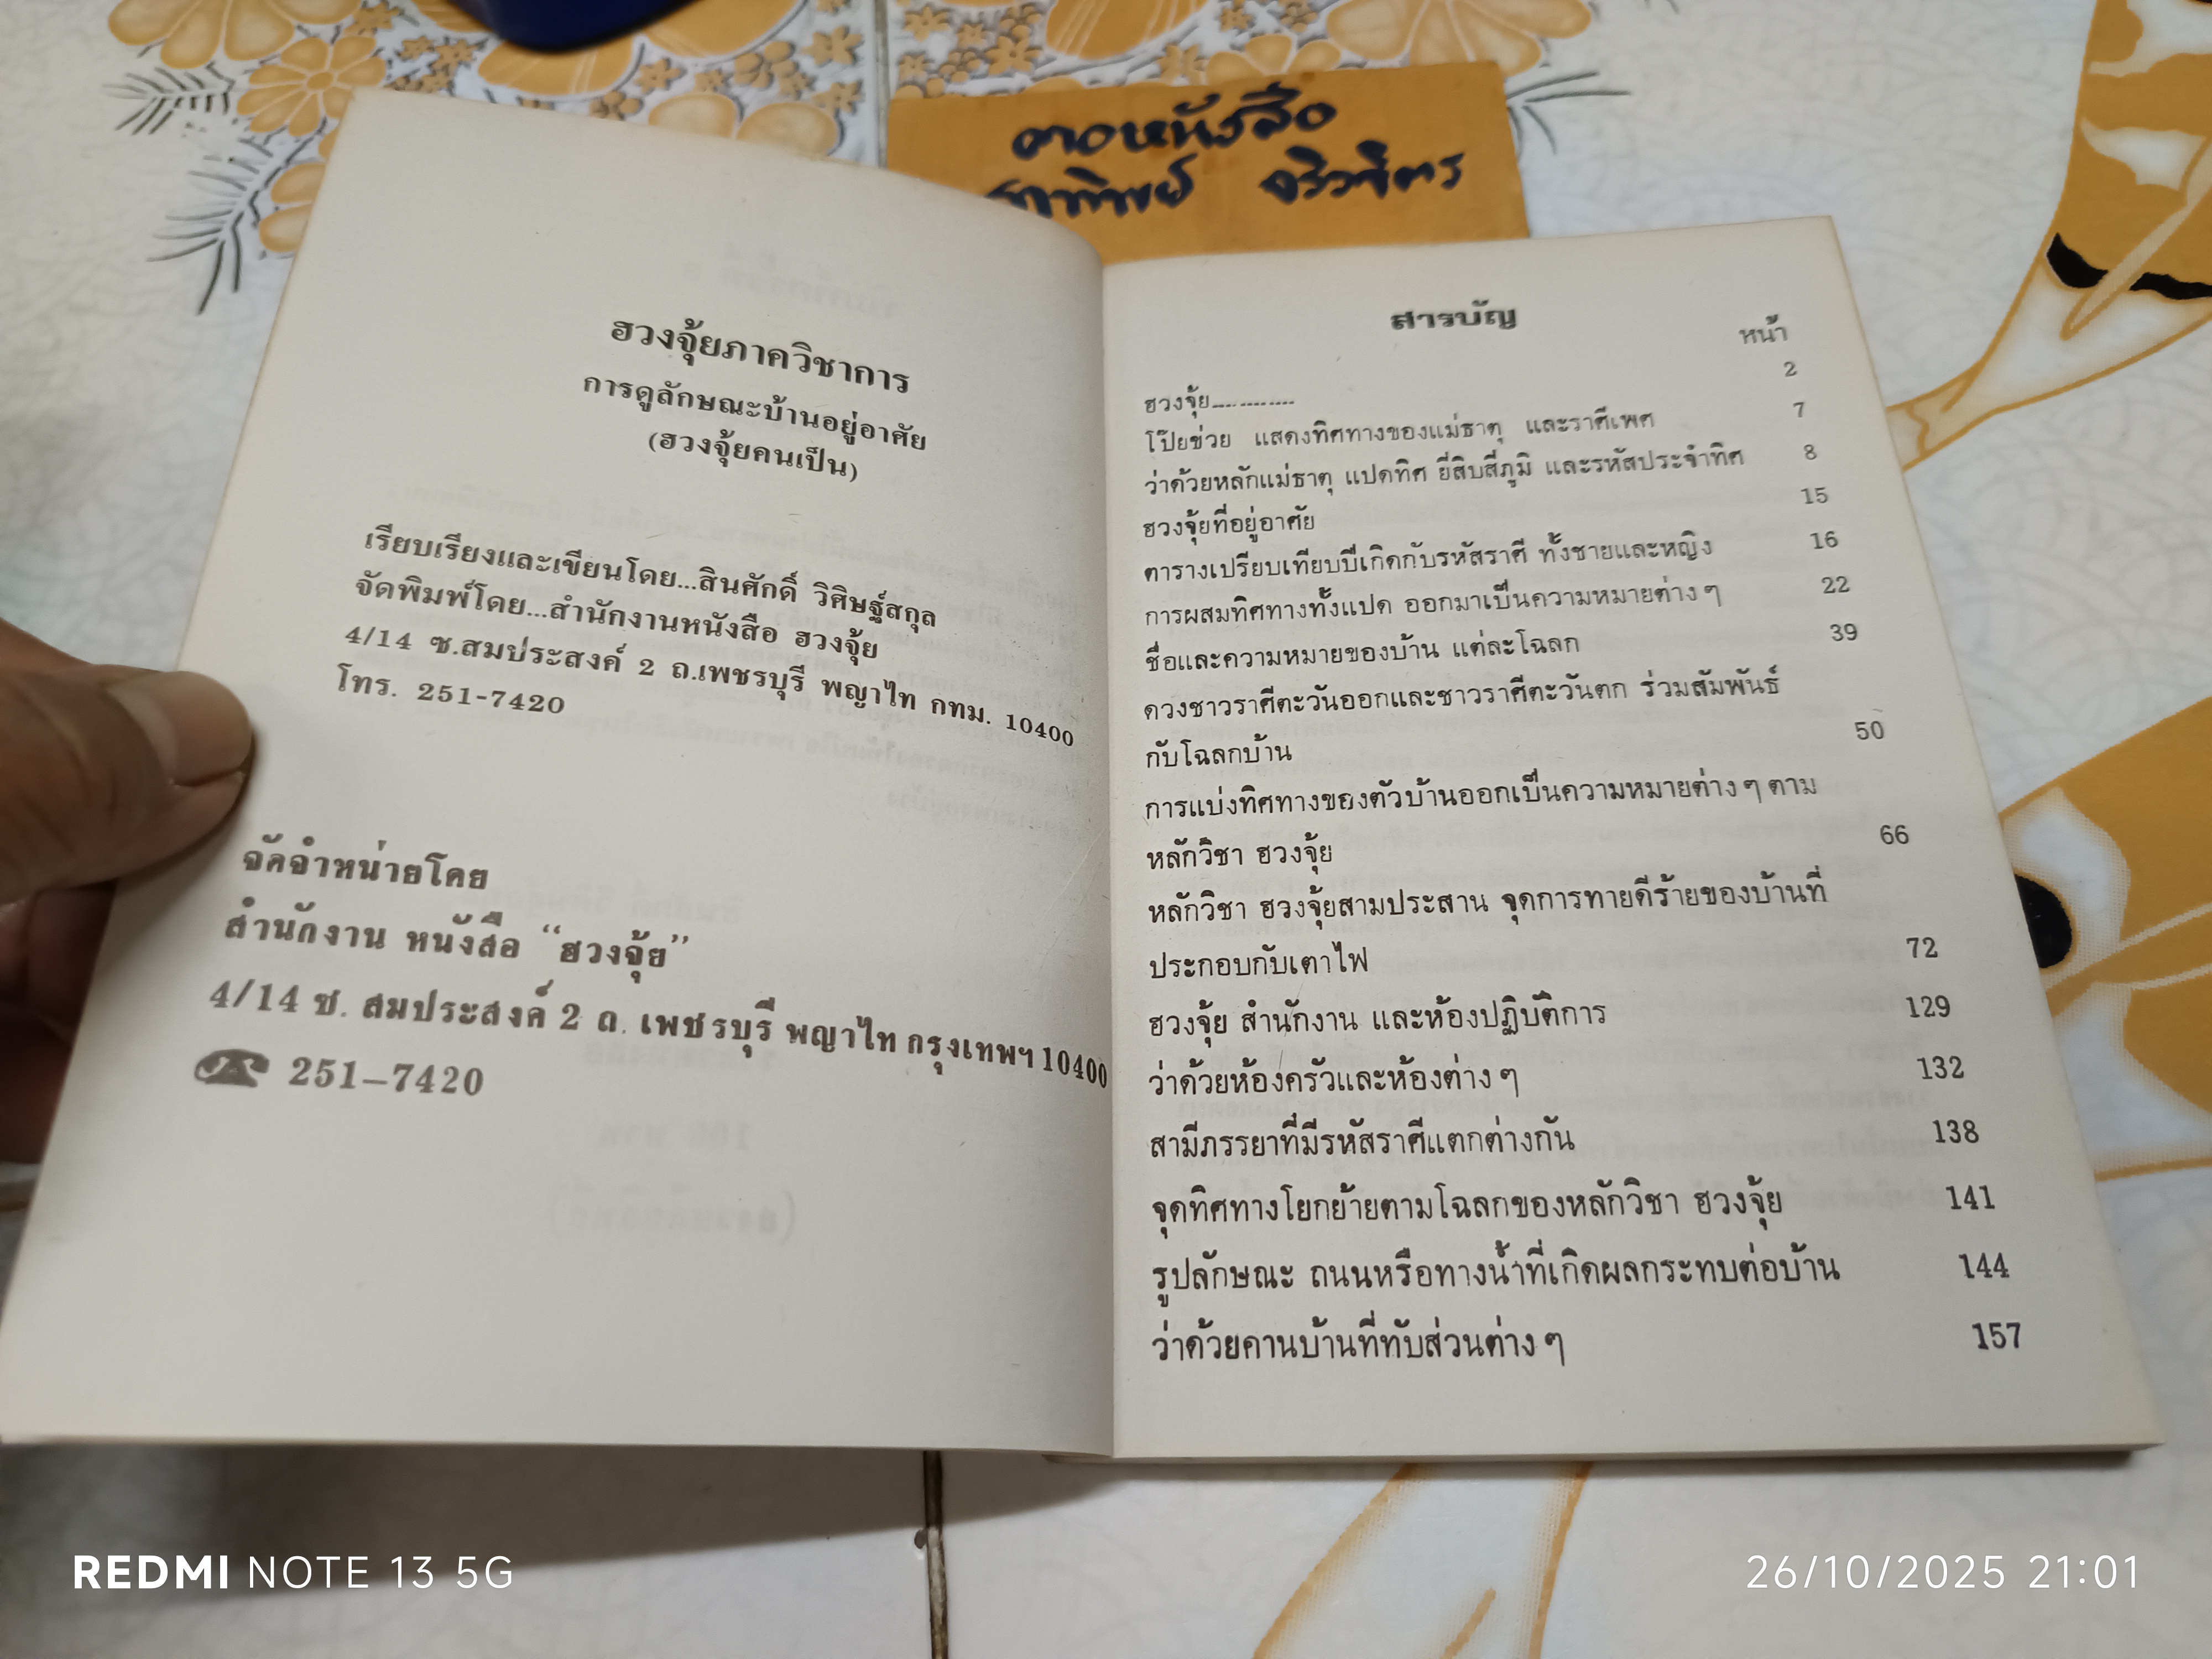 ฮวงจุ้ยภาควิชาการ
การดูลักษณะบ้านอยู่อาศัย
(ฮวงจุ้ยคนเป็น)
เรียบเรียงและเขียนโดย...สินศักดิ์ วิศิษฐ์สกุล
จัดพิมพ์โดย...สำนักงานหนังสือ ฮวงจุ้ย
4/14 ซ.สมประสงค์ 2 ถ.เพชรบุรี พญาไท กทม. 10400
โทร. 251-7420
จัดจำหน่ายโดย
สำนักงาน หนังสือ “ฮวงจุ้ย”
4/14 ซ. สมประสงค์ 2 ถ. เพชรบุรี พญาไท กรุงเทพฯ 10400
251-7420
หนังสือ
สารบัญ
หน้า
ฮวงจุ้ย............ 2
โป๊ยข่วย แสดงทิศทางของแม่ธาตุ และราศีเพศ 7
ว่าด้วยหลักแม่ธาตุ แปดทิศ ยี่สิบสี่ภูมิ และรหัสประจำทิศ 8
ฮวงจุ้ยที่อยู่อาศัย 15
ตารางเปรียบเทียบปีเกิดกับรหัสราศี ทั้งชายและหญิง 16
การผสมทิศทางทั้งแปด ออกมาเป็นความหมายต่าง ๆ 22
ชื่อและความหมายของบ้าน แต่ละโฉลก 39
ดวงชาวราศีตะวันออกและชาวราศีตะวันตก ร่วมสัมพันธ์
กับโฉลกบ้าน 50
การแบ่งทิศทางของตัวบ้านออกเป็นความหมายต่าง ๆ ตาม
หลักวิชา ฮวงจุ้ย 66
หลักวิชา ฮวงจุ้ยสามประสาน จุดการทายดีร้ายของบ้านที่
ประกอบกับเตาไฟ 72
ฮวงจุ้ย สำนักงาน และห้องปฏิบัติการ 129
ว่าด้วยห้องครัวและห้องต่าง ๆ 132
สามีภรรยาที่มีรหัสราศีแตกต่างกัน 138
จุดทิศทางโยกย้ายตามโฉลกของหลักวิชา ฮวงจุ้ย 141
รูปลักษณะ ถนนหรือทางน้ำที่เกิดผลกระทบต่อบ้าน 144
ว่าด้วยคานบ้านที่ทับส่วนต่าง ๆ 157
REDMI NOTE 13 5G
26/10/2025 21:01